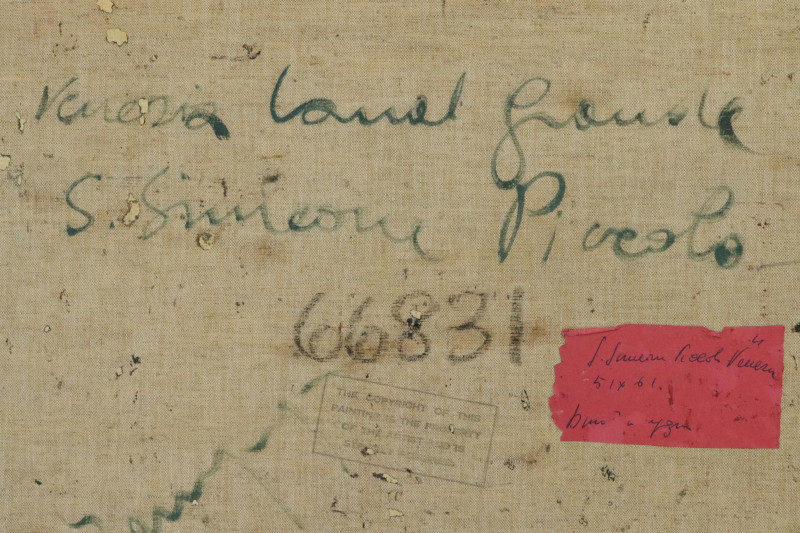 Venezia Canal Grande
S. Simeone Piccolo
66831
S. Simeone Piccolo Venezia
51 x 61.
THE COPYRIGHT OF THIS
PAINTING IS THE PROPERTY
OF THE ARTIST AND IS